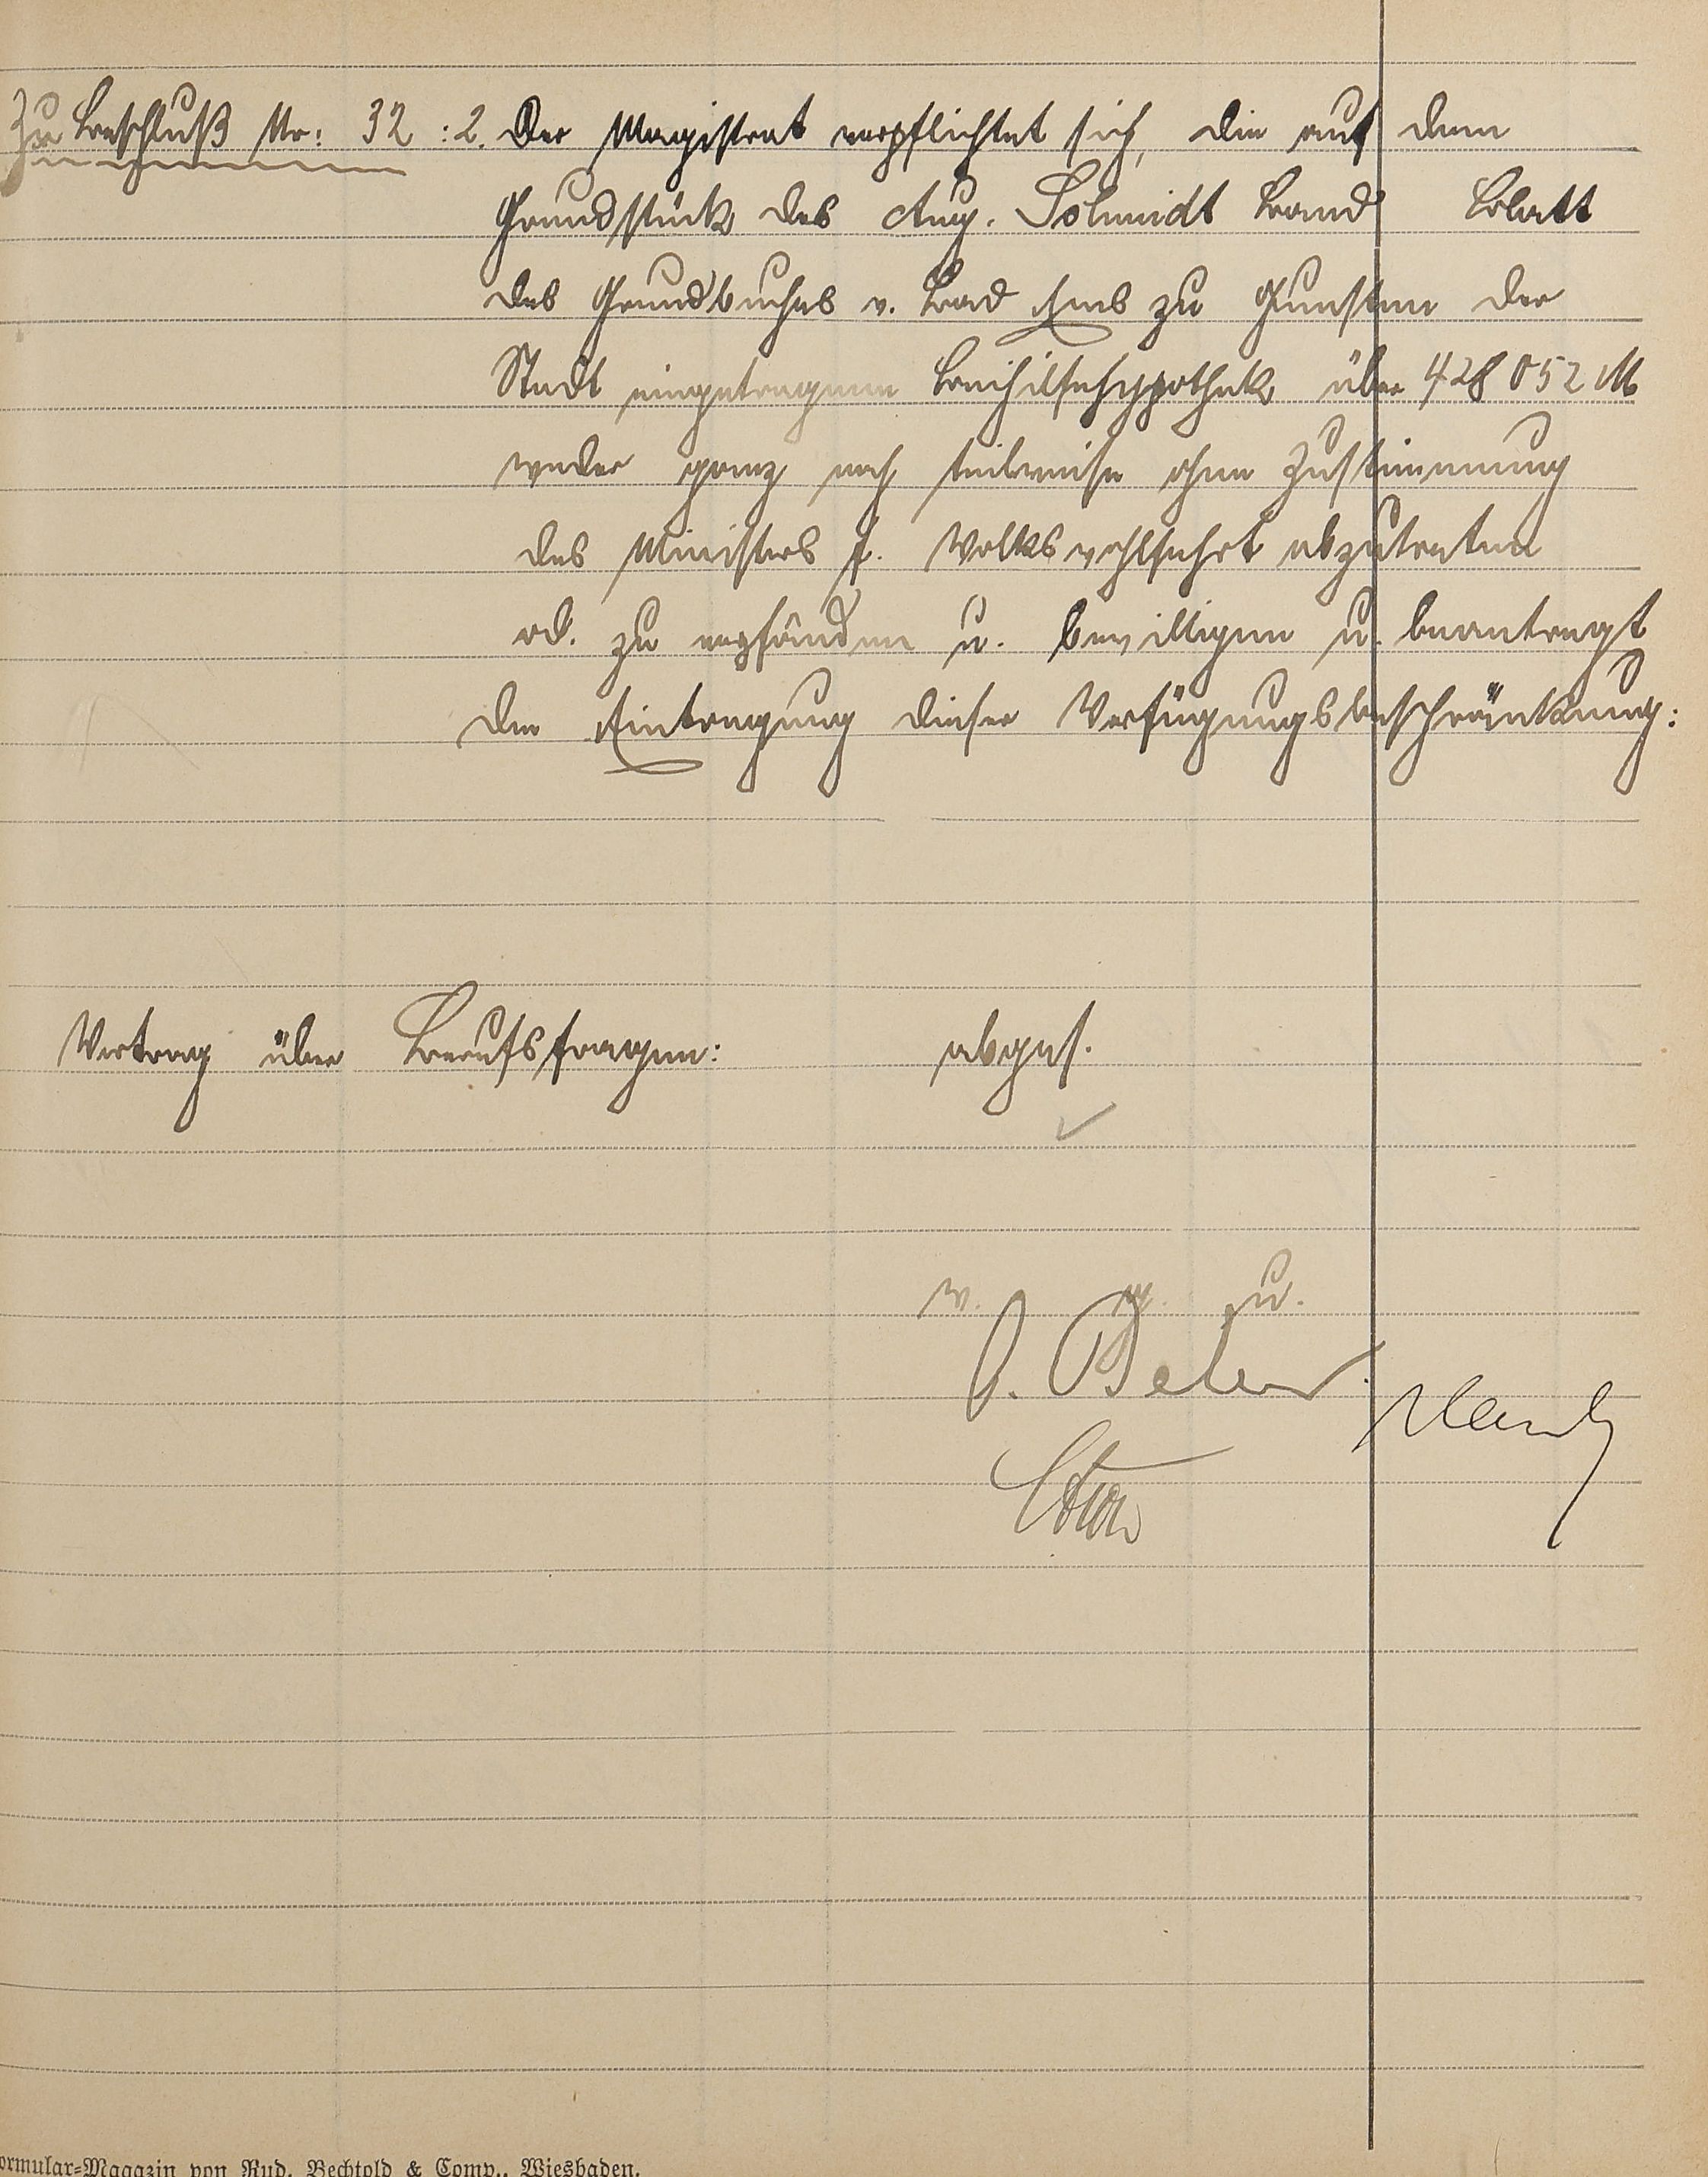 Zu Beschluß Nr: 32 : 2. Der Magistrat verpflichtet sich, die auf dem
Grundstück des Aug. Schmidt Band Blatt
des Grundbuches v. Bad Ems zu Gunsten der
Stadt eingetragene Beihilfehypothek über 428 052 M
weder ganz noch teilweise ohne Zustimmung
des Ministers f. Volkswohlfahrt abzutreten
od. zu verpfänden u. bewilligen u. beantragt
die Eintragung dieser Verfügungsbeschränkung:
Vertrag über Berufsfragen: abges.
v. g. u.
Formular=Magazin von Rud. Bechtold & Comp., Wiesbaden.